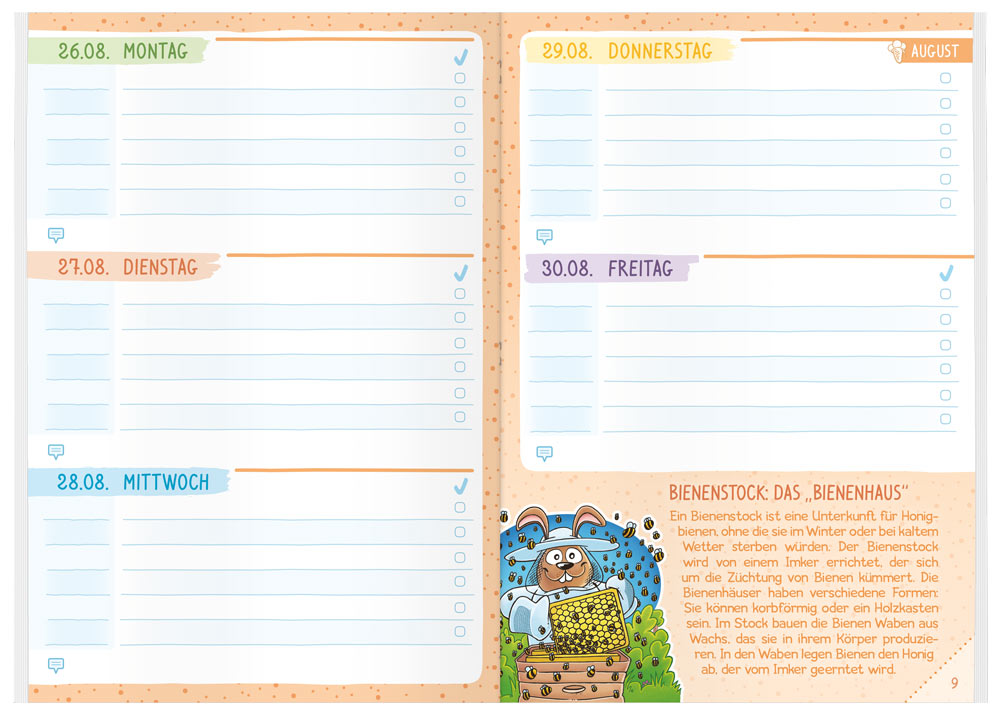 26.08. MONTAG
27.08. DIENSTAG
28.08. MITTWOCH
29.08. DONNERSTAG
AUGUST
30.08. FREITAG
BIENENSTOCK: DAS „BIENENHAUS“
Ein Bienenstock ist eine Unterkunft für Honig-
bienen, ohne die sie im Winter oder bei kaltem
Wetter sterben würden. Der Bienenstock
wird von einem Imker errichtet, der sich
um die Züchtung von Bienen kümmert. Die
Bienenhäuser haben verschiedene Formen:
Sie können korbförmig oder ein Holzkasten
sein. Im Stock bauen die Bienen Waben aus
Wachs, das sie in ihrem Körper produzie-
ren. In den Waben legen Bienen den Honig
ab, der vom Imker geerntet wird.
9